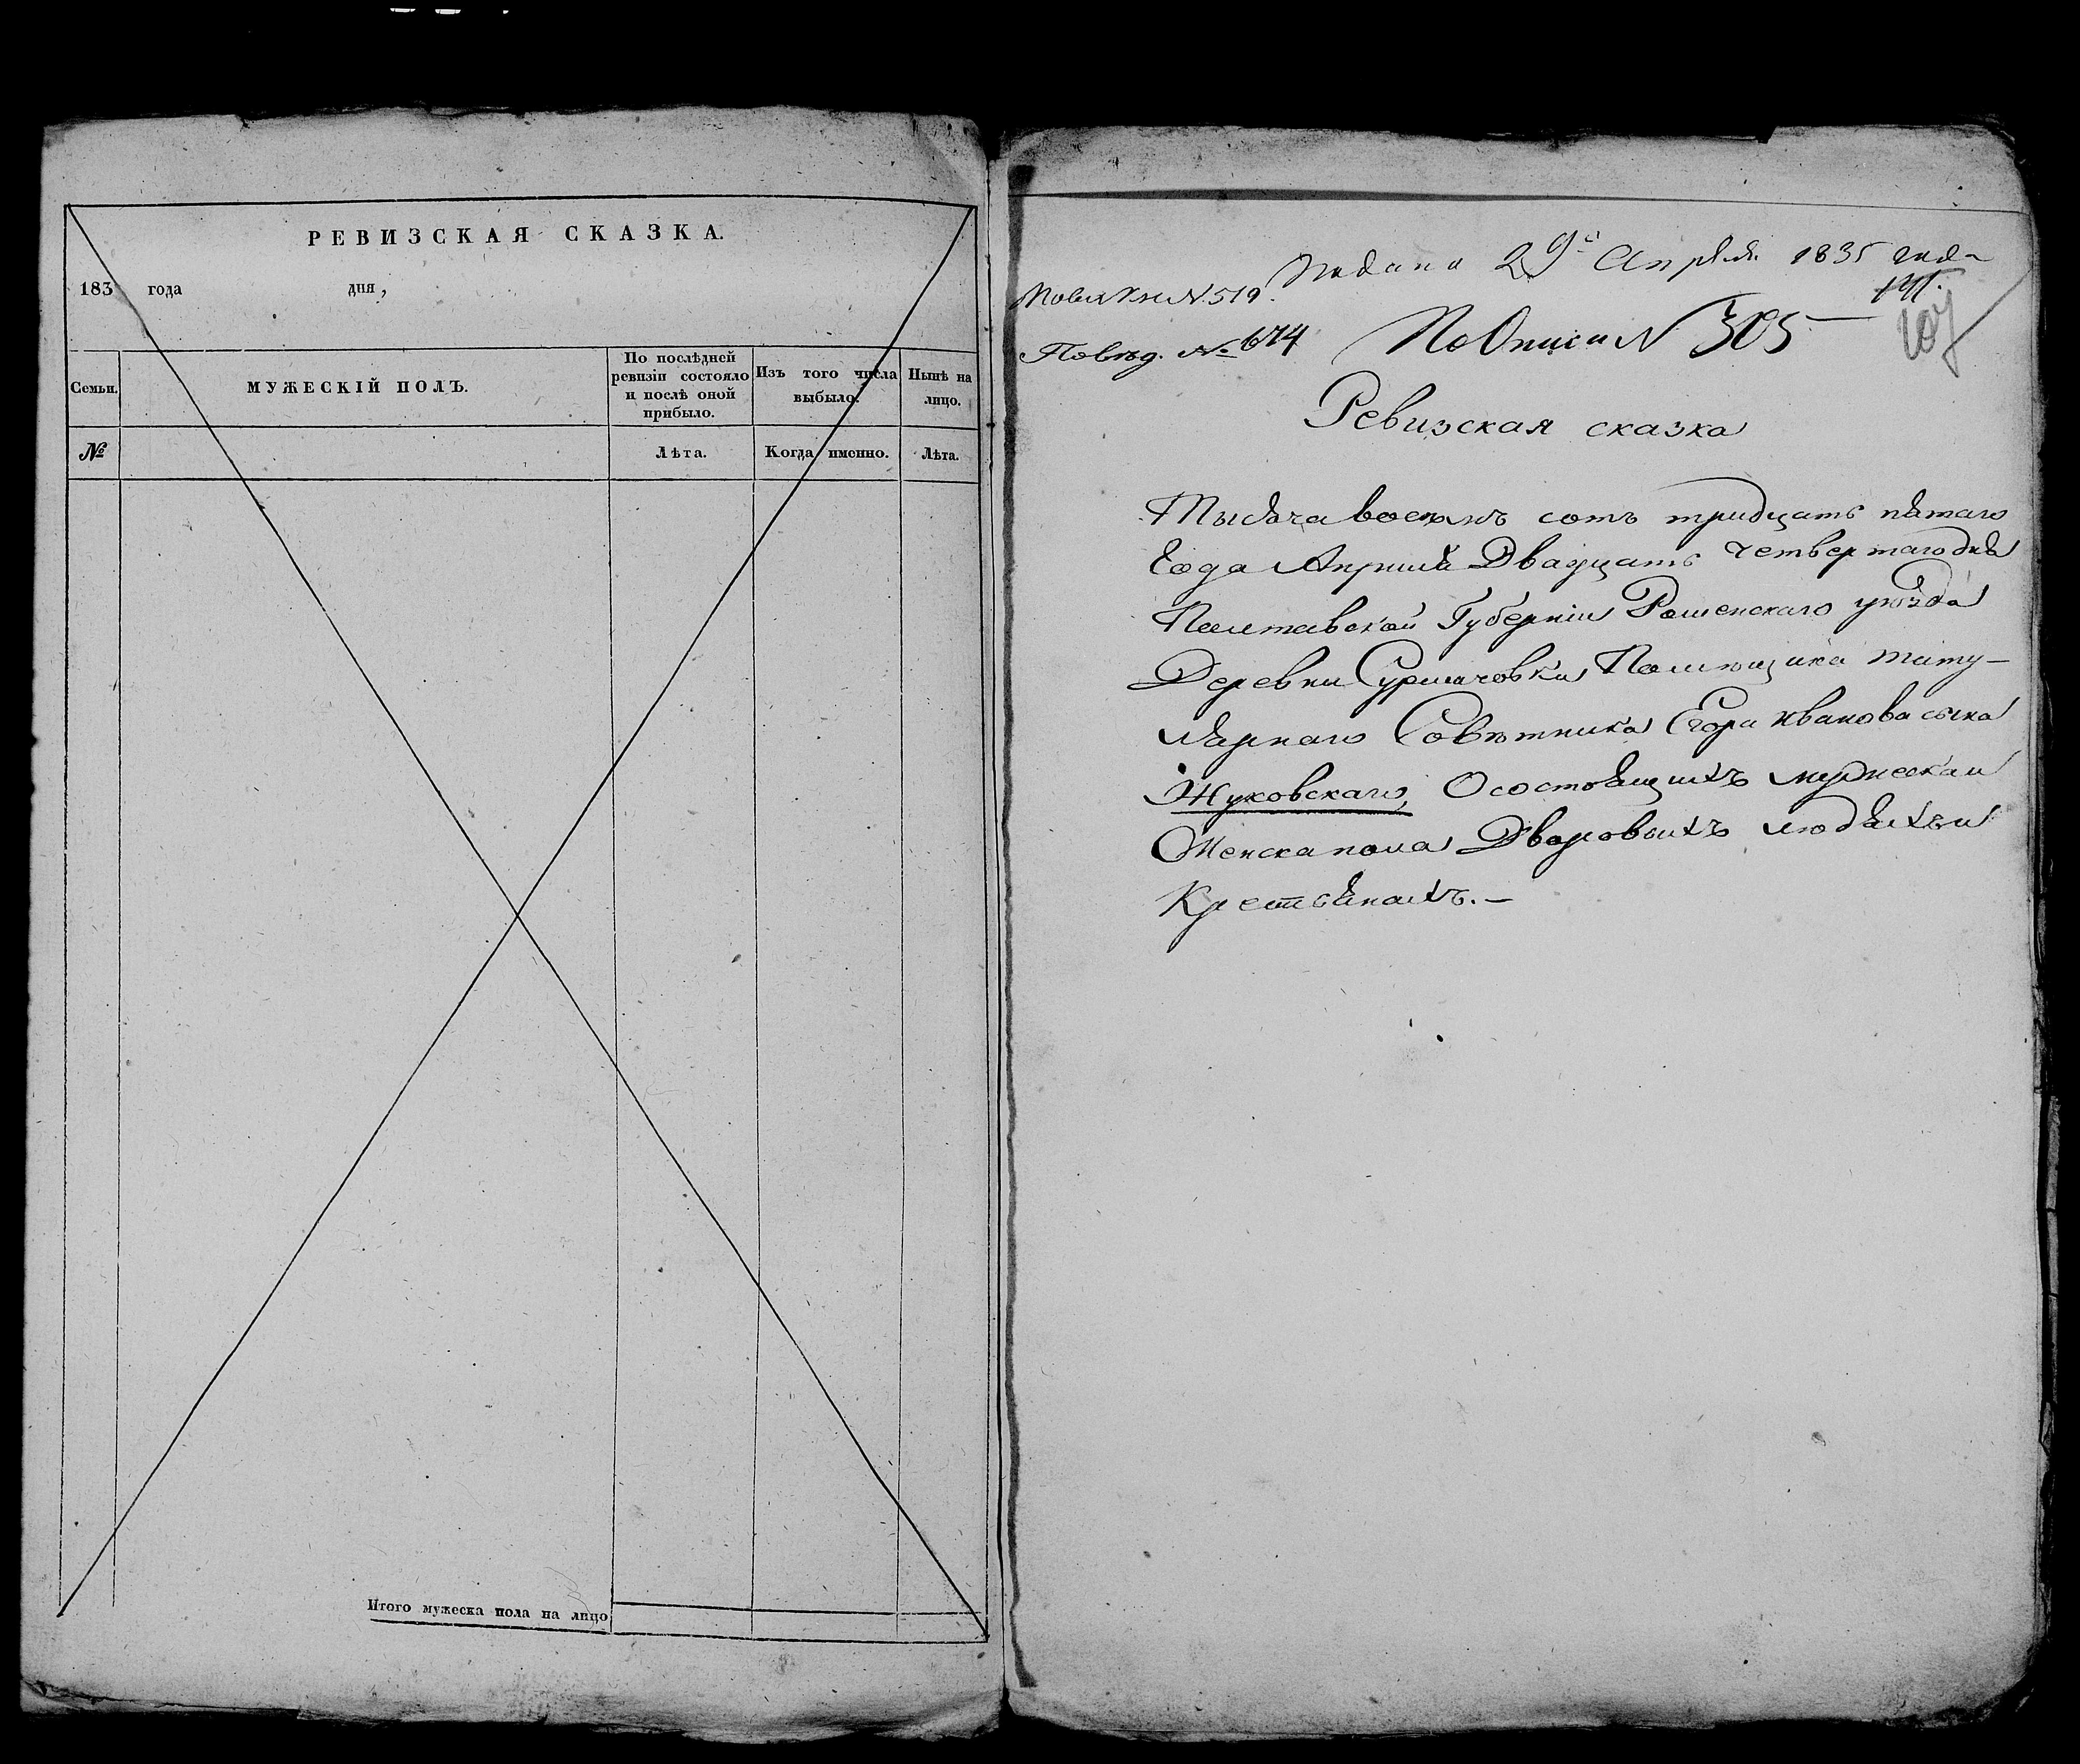 РЕВИЗСКАЯ СКАЗКА.
183 года дня,
Семьи.
МУЖЕСКІЙ ПОЛЪ.
По послѣдней
ревизіи состояло
и послѣ оной
прибыло.
Изъ того числа
выбыло.
Нынѣ на
лицо.
№
Лѣта.
Когда именно.
Лѣта.
Итого мужеска пола на лицо
Подана 29го Апреля 1835 года
№ 519.
№ 674
По Описи № 305
107
Ревизская сказка
Тысяча восемь сотъ тридцать пятаго
Года Априля Двадцать четвертаго дня
Полтавской Губерніи Роменскаго уезда
Деревни Помѣщика титу-
лярнаго Совѣтника Егора Иванова сына
Жуковскаго, О состоящихъ мужеска и
Женска пола Дворовыхъ людяхъ и
Крестьянахъ.-